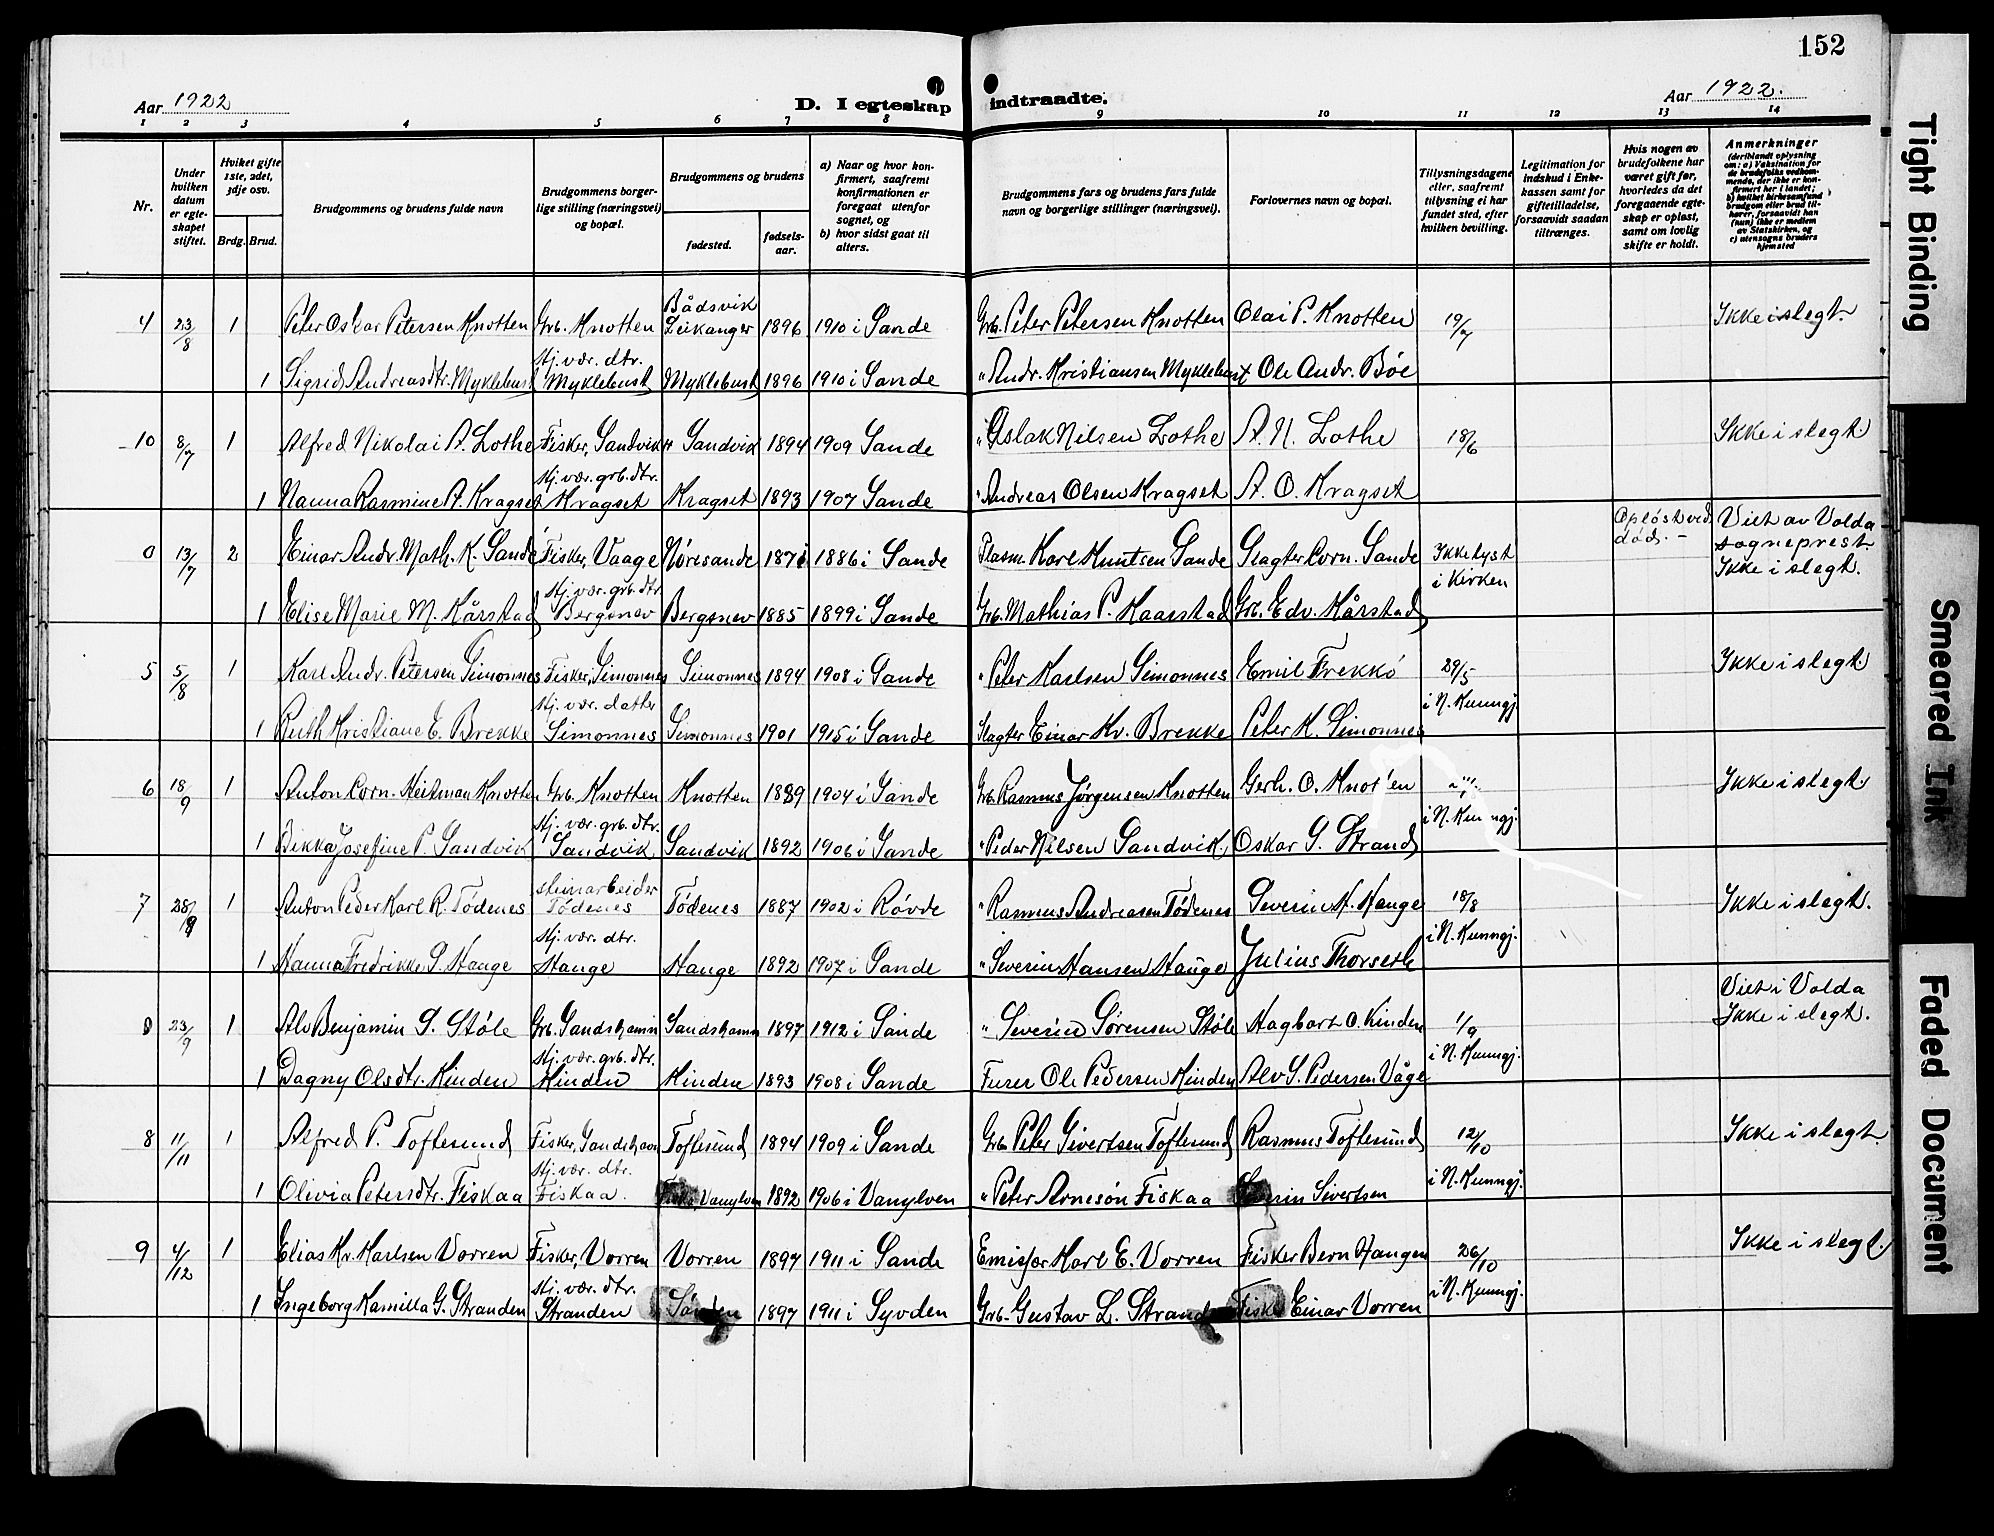 152
Aar 1922
D. I egteskap indtraadte.
Aar 1922.
1 2 3 4 5 6 7 8 9 10 11 12 13 14
Nr.
Under hvilken datum er egteskapet stiftet.
Hvilket gifte 1ste, 2det, 3dje osv.
Brdg. Brud.
Brudgommens og brudens fulde navn
Brudgommens borgerlige stilling (næringsvei) og bopæl.
Brudgommens og brudens
fødested.
fødselsaar.
a) Naar og hvor konfirmert, saafremt konfirmationen er foregaat utenfor sognet, og
b) hvor sidst gaat til alters.
Brudgommens fars og brudens fars fulde navn og borgerlige stillinger (næringsvei).
Forlovernes navn og bopæl.
Tillysningsdagene eller, saafremt tillysning ei har fundet sted, efter hvilken bevilling.
Legitimation for indskud i Enkekassen samt for giftetilladelse, forsaavidt saadan tiltrænges.
Hvis nogen av brudefolkene har været gift før, hvorledes da det foregaaende egteskap er opløst, samt om lovlig skifte er holdt.
Anmerkninger
(deriblandt oplysning om: a) Vaksination for de brudefolks vedkommende, der ikke er konfirmert her i landet; b) hvilket kirkesamfund brudgom eller brud tilhører, forsaavidt han (hun) ikke er medlem av Statskirken, og c) utensogns bruders hjemsted
4 23/8 1 Peter Oskar Petersen Knotten Grb. Knotten Bådsvik Leikanger 1896 1910 i Sande Grb. Peter Petersen Knotten Olai P. Knotten 19/7 Ikke i slegt.
1 Sigrid Andreasdtr. Myklebust Hj. vær. dtr. Myklebust Myklebust 1896 1910 i Sande " Andr. Kristiansen Myklebust Ole Andr. Böe
10 8/7 1 Alfred Nikolai A. Lothe Fisker, Sandvik Sandvik 1894 1909 Sande " Aslak Nilsen Lothe A. N. Lothe 18/6 Ikke i slegt
1 Nanna Rasmine A. Kragset Hj. vær. grb. dtr. Kragset Kragset 1893 1907 Sande " Andreas Olsen Kragset A. O. Kragset
0 13/7 2 Einar Andr. Math. K. Sande Fisker, Vaage Nöresande 1871 1886 i Sande Plasm. Karl Knutsen Sande Slagter Corn. Sande Ikke lyst i Kirken Oplöst ved död. - Viet av Volda sogneprest. Ikke i slegt.
1 Elise Marie M. Kårstad Hj. vær. grb. dtr. Bergsnev Bergsnev 1885 1899 i Sande Grb. Mathias P. Kaarstad Grb. Edv. Kårstad
5 5/8 1 Karl Andr. Petersen Simonnes Fisker, Simonnes Simonnes 1894 1908 i Sande " Peter Karlsen Simonnes Emil Frekkö 29/5 i N. Kunngj. Ikke i slegt.
1 Ruth Kristiane E. Brekke Hj. vær. datter Simonnes Simonnes 1901 1915 i Sande Slagter Einar Kr. Brekke Peter K. Simonnes
6 18/9 1 Anton Corn. Heitman Knotten Grb. Knotten Knotten 1889 1904 i Sande Grb. Rasmus Jörgensen Knotten Gerh. O. Knotten i N. Kunngj. Ikke i slegt.
1 Bikka Josefine P. Sandvik Hj. vær. grb. dtr. Sandvik Sandvik 1892 1906 i Sande " Peder Nilsen Sandvik. Oskar G. Strand
7 28/9 1 Anton Peder Karl R. Tödenes steinarbeider Tödenes Tödenes 1887 1902 i Rövde " Rasmus Andreasen Tödenes Severin H. Hauge 18/8 i N. Kunngj. Ikke i slegt.
1 Hanna Fredrikke S. Hauge Hj. vær. dtr. Hauge Hauge 1892 1907 i Sande " Severin Hansen Hauge Julius Thorseth
23/9 1 Alv Benjamin S. Stöle Grb. Sandshamn Sandshamn 1897 1912 i Sande " Severin Sörensen Stöle Hagbart O. Kinden 1/9 i N. Kunngj. Viet i Volda Ikke i slegt.
1 Dagny Olsdtr. Kinden Hj. vær. grb. dtr. Kinden Kinden 1893 1908 i Sande Furer Ole Pedersen Kinden Alv S. Pedersen Våge
8 11/11 1 Alfred P. Toftesund Fisker, Sandshavn Toftesund 1894 1909 i Sande Grb. Peter Sivertsen Toftesund Rasmus Toftesund 12/10 i N. Kunngj. Ikke i slegt.
1 Olivia Petersdtr. Fiskaa Hj. vær. dtr. Fiskaa. Vanylven 1892 1906 i Vanylven " Peter Arnesön Fiskaa Severin Sivertsen
9 4/12 1 Elias Kr. Karlsen Vorren Fisker, Vorren Vorren 1897 1911 i Sande Emisfær Karl E. Vorren Fisker Bern Haugen 26/10 i N. Kunngj. Ikke i slegt.
1 Ingeborg Kamilla G. Stranden Hj. vær. dtr. Stranden 1897 1911 i Syvden Grb. Gustav L. Strand Fisker Einar Vorren
Tight Binding
Smeared Ink
Faded Document